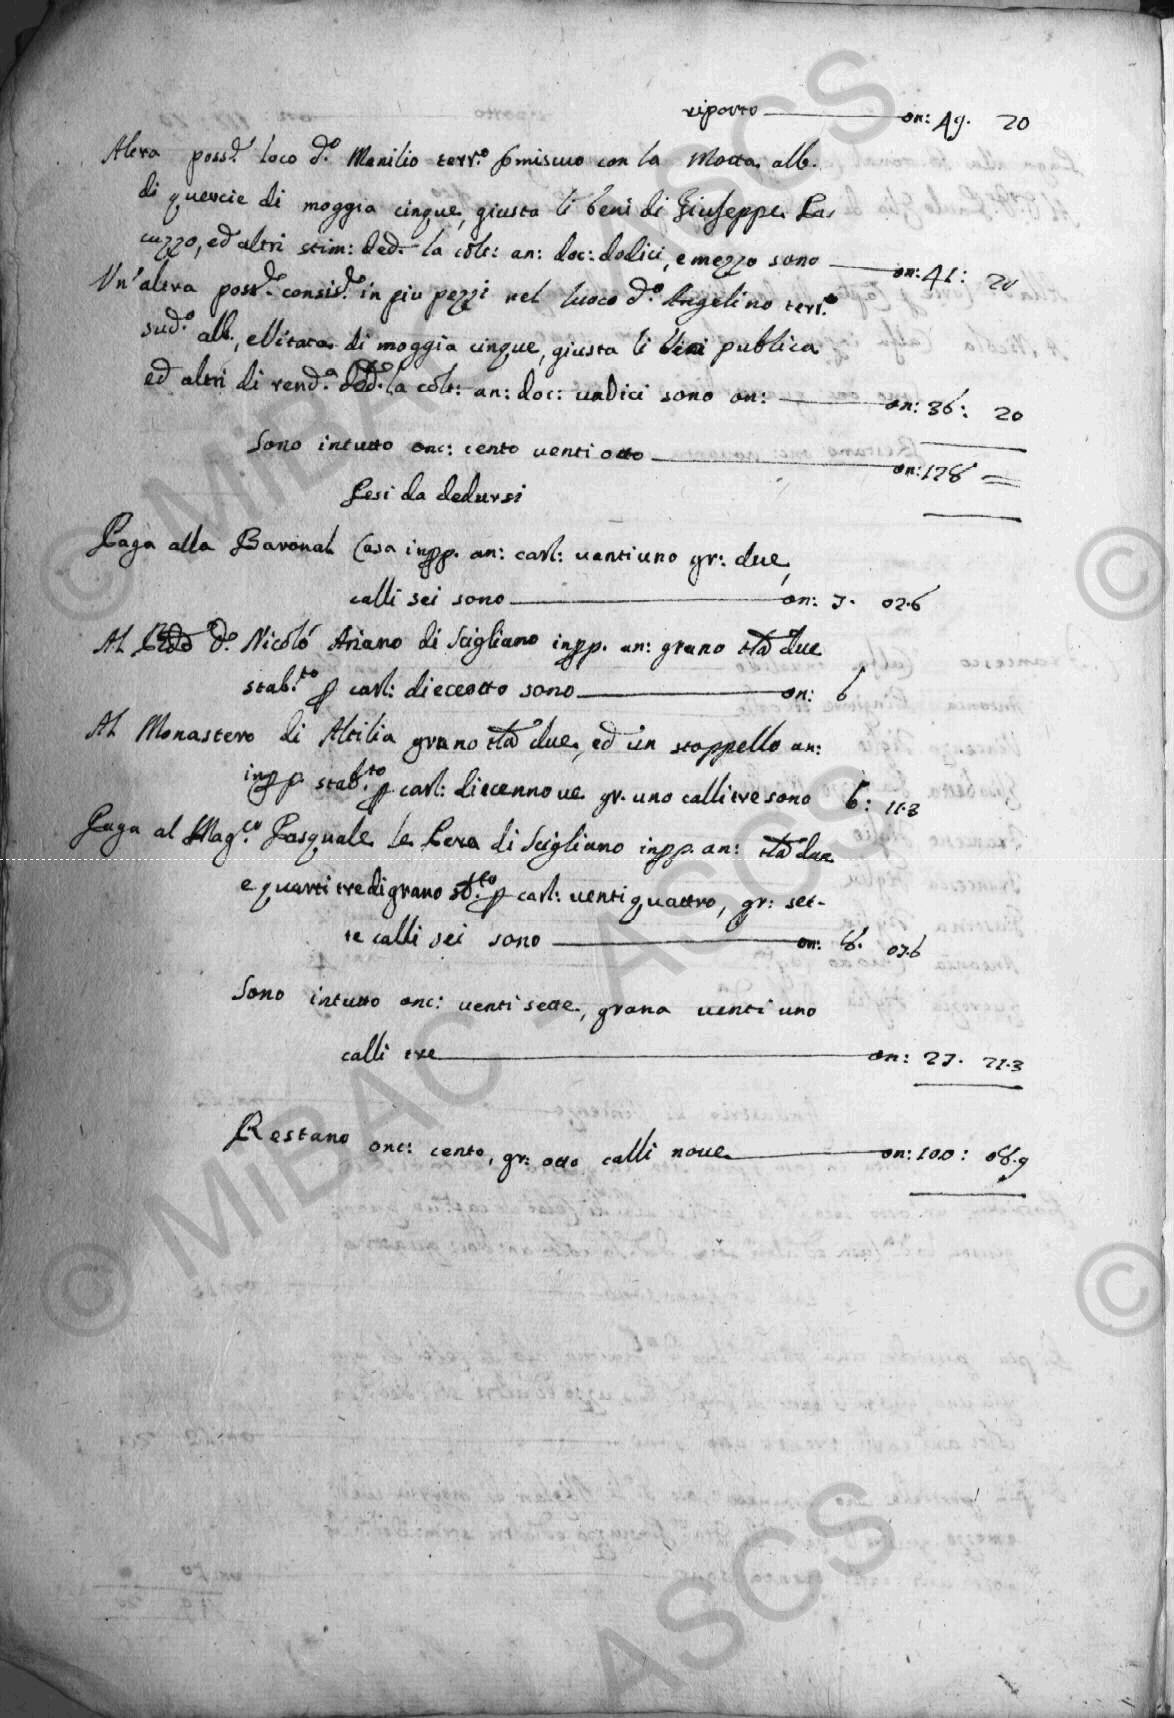 riporto on: 49. 20
Altra poss.e loco d.o Manilio terr.o promiscuo con la Motta alb.
di quercie di moggia cinque, giusta li beni di Giuseppe La,
cuzzo, ed altri stim: ded. la colt: an: doc: dodici, e mezzo sono on: 41: 20
Un'altra poss.e consis.te in piu pezzi nel luoco d.o Angelino terr.o
sud.o alb., e vitata di moggia cinque, giusta li beni publica
ed altri di rend.a ded. la colt: an: doc: undici sono on: on: 36: 20
Sono intutto onc: cento venti otto on: 128 =
Pesi da dedursi
Paga alla Baronal Casa inpp. an: carl: ventiuno gr: due,
calli sei sono on: 7. 02.6
Al d.o Nicolò Ariano di Scigliano inpp. an: grano tt.a due
stab.to p carl: dieceotto sono on: 6
Al Monastero di Altilia grano tt.a due, ed un stoppello an:
inpp. stab.to p carl: diecennove gr. uno calli tre sono 6: 11.3
Paga al Mag.co Pasquale le Pera di Scigliano inpp. an: tt.a due
e quarti tre di grano st.to p carl: venti quattro, gr: set-
te calli sei sono on: 8. 07.6
Sono intutto onc: venti sette, grana venti uno
calli tre on: 27. 21.3
Restano onc: cento, gr: otto calli nove on: 100: 08.9
© MiBAC - ASCS
© MiBAC - ASCS
©
©
ASCS